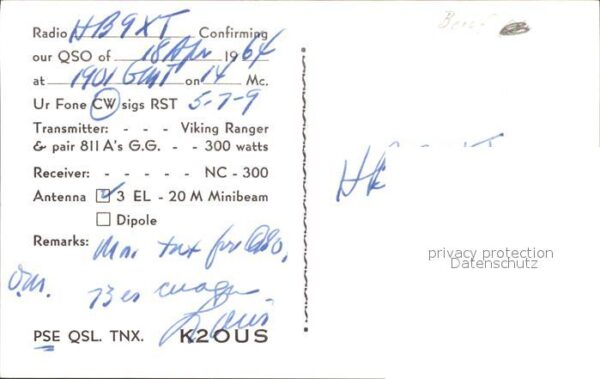 Radio HB9XT Confirming
our QSO of 18 Apr 1964
at 1901 GMT on 14 Mc.
Ur Fone CW sigs RST 5-7-9
Transmitter: - - - Viking Ranger
& pair 811A's G.G. - - 300 watts
Receiver: - - - - - NC - 300
Antenna 3 EL - 20 M Minibeam
Dipole
Remarks: Mni tnx for QSO,
O.M. 73 es
Louis
PSE QSL. TNX. K2OUS
privacy protection
Datenschutz